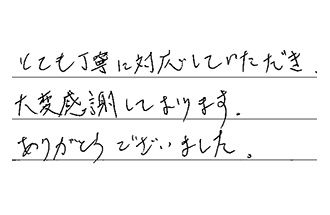 とても丁寧に対応していただき、
大変感謝しております。
ありがとうございました。